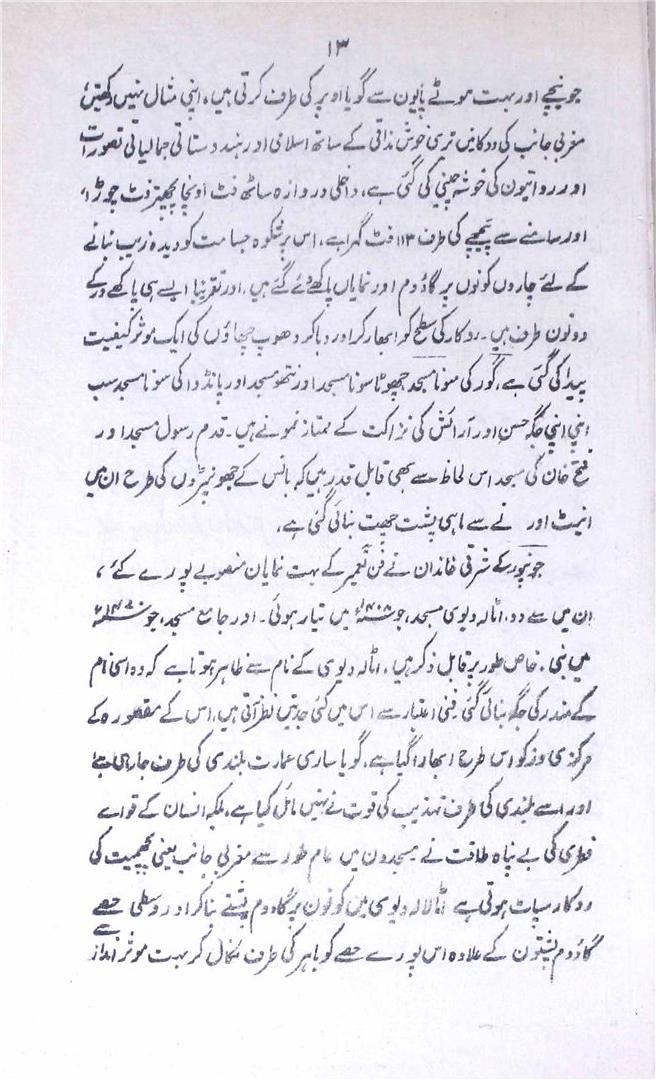 ۱۳
جو نیچے اور بہت موٹے پایوں سے گویا اوپر کی طرف کرتی ہیں، اپنی مثال نہیں رکھتیں
مغربی جانب کی ودکانیں تری خوش مذاقی کے ساتھ اسلامی اور ہندوستانی جمالیاتی تصورات
اور روایتیون کی خوشہ چینی کی گئی ہے، داخلی دروازہ ساٹھ فٹ اونچا پچھتر فٹ چوڑا،
اور سامنے سے پیچھے کی طرف ۱۱۳ فٹ گہرا ہے، اس پر شکوہ جسامت کو دیدہ زیب بنانے
کے لئے چاروں کونوں پر گاؤدم اور نمایاں پاکھے دئے گئے ہیں۔ اور تقریباً ایسے ہی پاکھے در کے
دونوں طرف ہیں۔ روکار کی سطح کو ابھار کر اور دبا کر دھوپ چھاؤں کی ایک موثر کیفیت
پیدا کی گئی ہے، گور کی سونا مسجد چھوٹا سونا مسجد اور نتھو مسجد اور پانڈوا کی سونا مسجد سب
اپنی اپنی جگہ حسن اور آرائش کی نزاکت کے ممتاز نمونے ہیں۔ قدم رسول مسجد اور
فتح خان کی مسجد اس لحاظ سے بھی قابل قدر ہیں کہ بانس کے جھونپڑوں کی طرح ان میں
انیٹ اور نے سے ماہی پشت چھت بنائی گئی ہے،
جونپور کے شرقی خاندان نے فن تعمیر کے بہت نمایان منصوبے پورے کئے،
ان میں سے دو، اٹالہ دیوی مسجد، جو ۱۴۰۸ء میں تیار ہوئی۔ اور جامع مسجد، جو ۱۴۷۰ء
میں بنی۔ خاص طور پر قابل ذکر ہیں، اٹالہ دیوی کے نام سے ظاہر ہوتا ہے کہ وہ اسی نام
کے مندر کی جگہ بنائی گئی۔ فنی اعتبار سے اس میں کئی جدتیں نظر آتی ہیں، اس کے مقصورہ کے
مرکزی در کو اس طرح ابھارا گیا ہے، گویا ساری عمارت بلندی کی طرف جارہی ہے
اور اسے بلندی کی طرف تہذیب کی قوت نے نہیں مائل کیا ہے، بلکہ انسان کے قواے
فطری کی بے پناہ طاقت نے مسجدوں میں عام طور سے مغربی جانب یعنی پچھمیت کی
روکار سپاٹ ہوتی ہے اٹالالہ دیوی میں کونوں پر گاودم پشتے بنا کر اور وسطی حصے
گاؤدم پشتون کے علاوہ اس پورے حصے کو باہر کی طرف نکال کر بہت موثر انداز سے